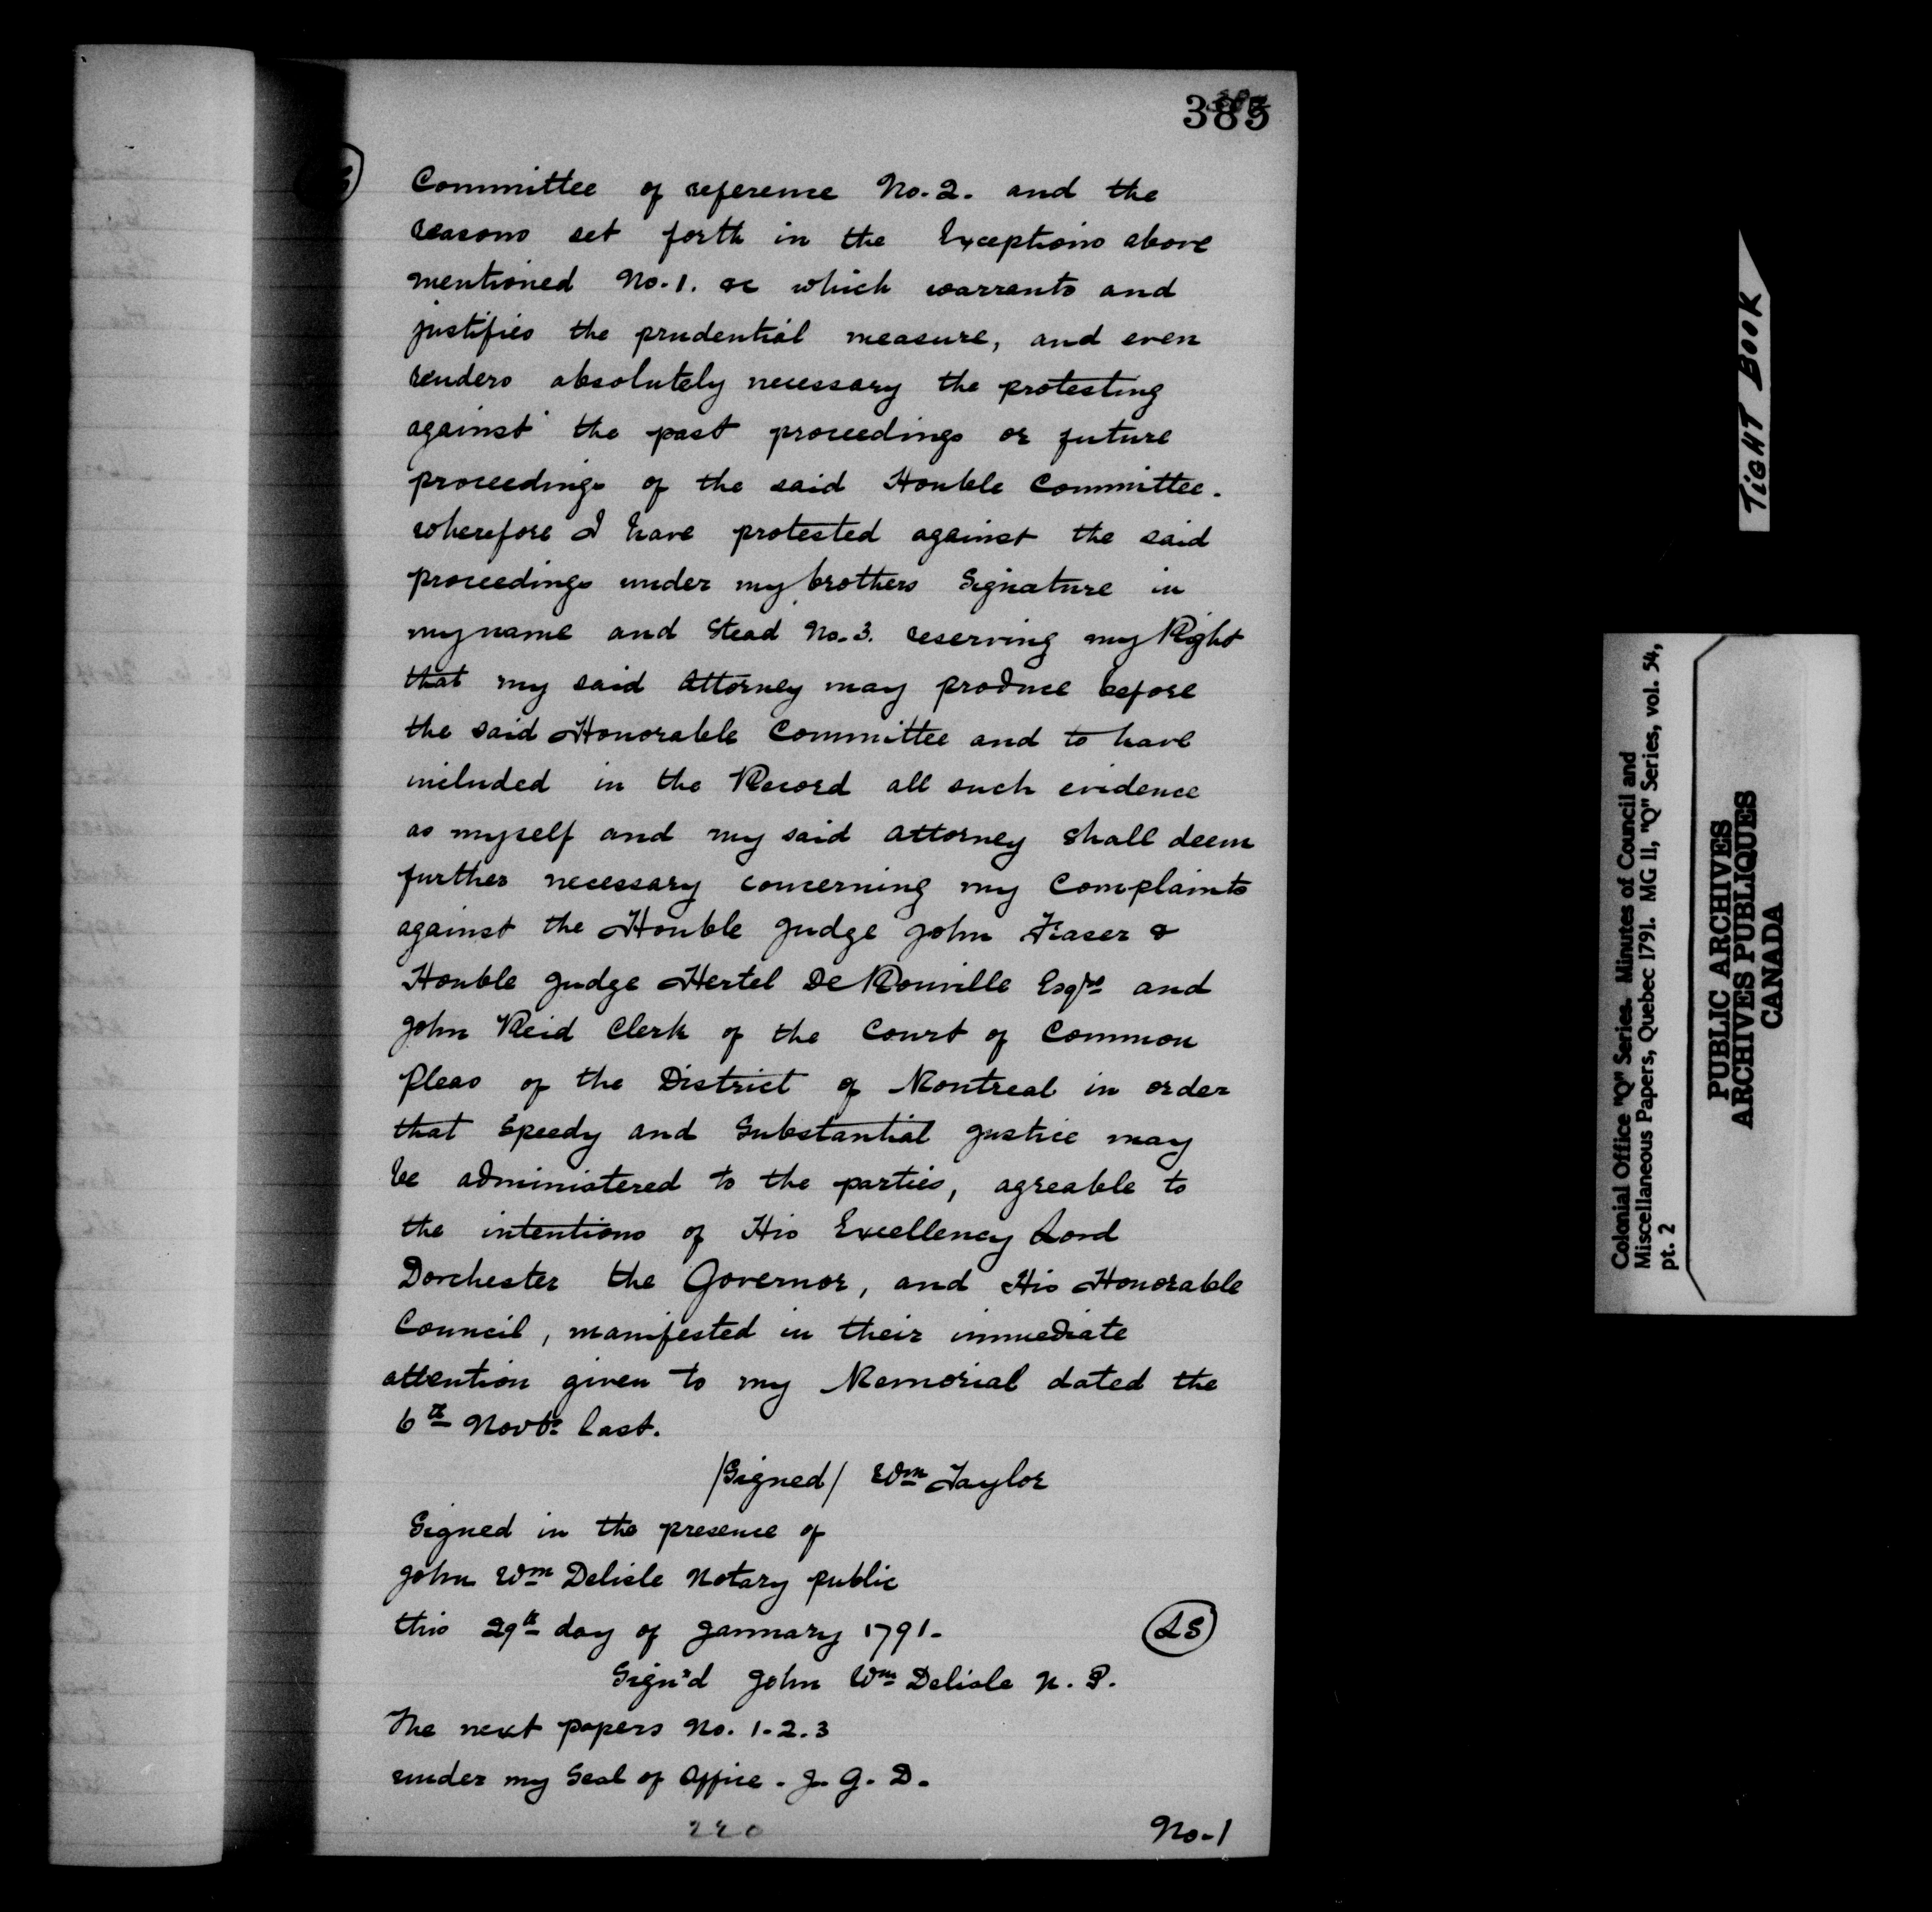 385
Committee of reference No. 2. and the
reasons set forth in the Exceptions above
mentioned No. 1. &c which warrants and
justifies the prudential measure, and even
renders absolutely necessary the protesting
against the past proceedings or future
proceedings of the said Honble Committee.
wherefore I have protested against the said
proceedings under my brothers Signature in
my name and Stead No. 3. reserving my Right
that my said Attorney may produce before
the said Honorable Committee and to have
included in the Record all such evidence
as myself and my said attorney shall deem
further necessary concerning my Complaints
against the Honble Judge John Fraser &
Honble Judge Hertel De Rouville Esqrs and
John Reid Clerk of the Court of Common
Pleas of the District of Montreal in order
that Speedy and Substantial Justice may
be administered to the parties, agreable to
the intentions of His Excellency Lord
Dorchester the Governor, and His Honorable
Council, manifested in their immediate
attention given to my Memorial dated the
6th Novbr last.
/Signed/ Wm Taylor
Signed in the presence of
John Wm Delisle Notary public
this 29th day of January 1791.
LS
Sign'd John Wm Delisle N. P.
The next papers No. 1. 2. 3
under my Seal of Office. J. G. D.
No. 1
TIGHT BOOK
Colonial Office "Q" Series. Minutes of Council and
Miscellaneous Papers, Quebec 1791. MG 11, "Q" Series, vol. 54,
pt. 2
PUBLIC ARCHIVES
ARCHIVES PUBLIQUES
CANADA